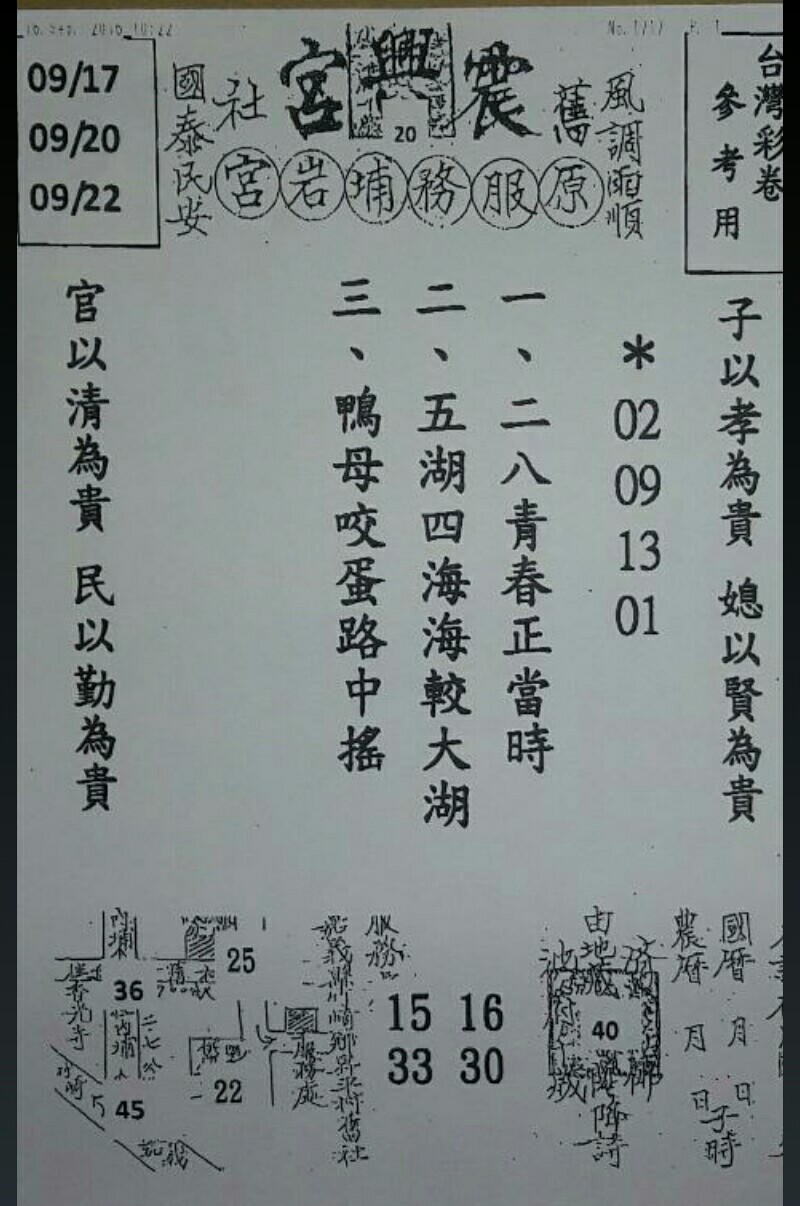 16.Sep. 2016 10:22
No.1717 P. 1
台灣彩卷
參考用
風調雨順
舊
震興宮
20
社
原服務埔岩宮
國泰民安
09/17
09/20
09/22
子以孝為貴 媳以賢為貴
*
02
09
13
01
一、二八青春正當時
二、五湖四海海較大湖
三、鴨母咬蛋路中搖
官以清為貴 民以勤為貴
國曆 月 日
農曆 月 日子時
由地藏
40
降詩
服務
15 16
33 30
服務處
25
22
內埔
36
45